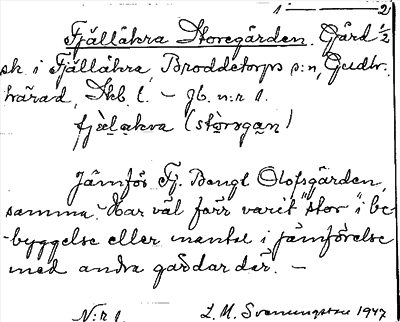 1 — 2
Fjällåkra Storegården. Gård 1/2
sk. i Fjällåkra, Broddetorps s:n, Gudh.
härad, Skb. l. – Jb. n:r 1.
fjälakra (storagan)
Jämför Fj. Bengt Olofsgården,
samma. – Har väl förr varit "stor" i be-
byggelse eller mantal i jämförelse
med andra gårdar där. –
N:r 1. L. M. Svenungsson 1947